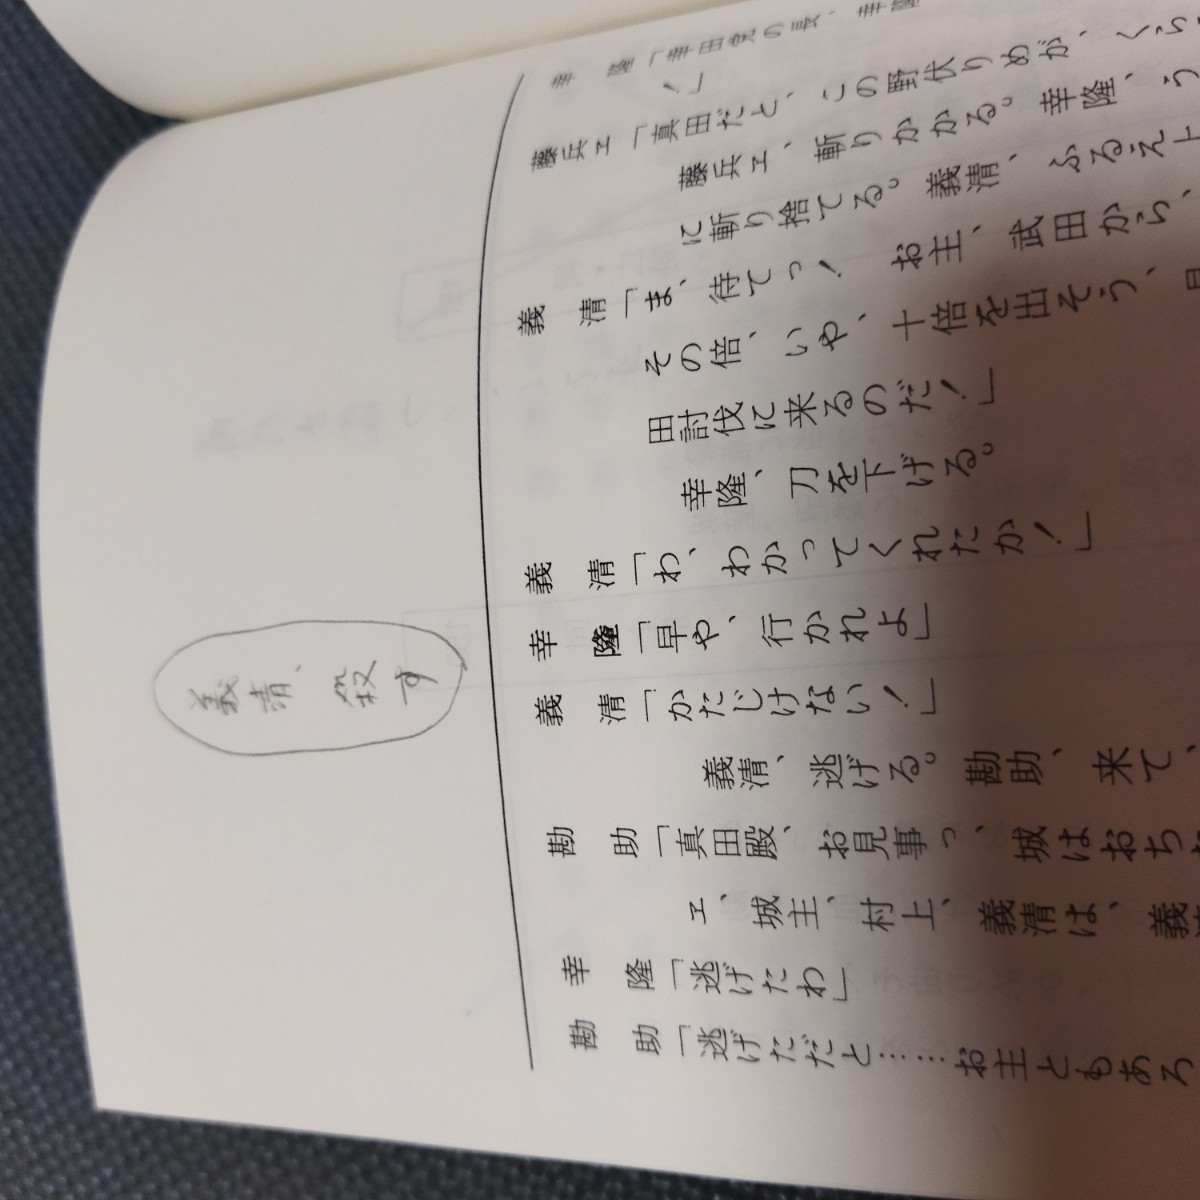 幸　隆「幸田党の長、幸隆
！」
藤兵ヱ「真田だと、この野伏りめが、くい
藤兵ヱ、斬りかかる。幸隆、う
に斬り捨てる。義清、ふるえ上
義　清「ま、待てっ！　お主、武田から、
その倍、いや、十倍を出そう、
田討伐に来るのだ！」
幸隆、刀を下げる。
義　清「わ、わかってくれたか！」
幸　隆「早や、行かれよ」
義　清「かたじけない！」
義清、逃げる。勘助、来て、
勘　助「真田殿、お見事っ、城はおちた
ヱ、城主、村上、義清は、義
幸　隆「逃げたわ」
勘　助「逃げただと……お主ともあろ
義清、殺す